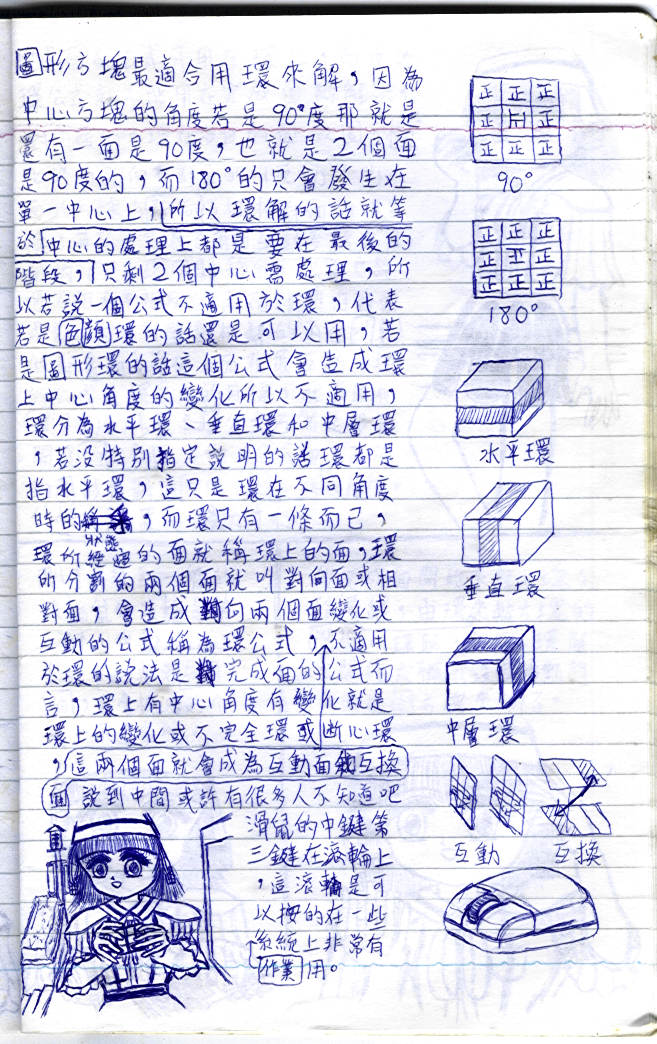 圖形方塊最適合用環來解，因為
中心方塊的角度若是90°度那就是
還有一面是90度，也就是2個面
是90度的，而180°的只會發生在
單一中心上，所以環解的話就等
於中心的處理上都是要在最後的
階段，只剩2個中心需處理，所
以若說一個公式不適用於環，代表
若是色顏環的話還是可以用，若
是圖形環的話這個公式會造成環
上中心角度的變化所以不適用，
環分為水平環、垂直環和中層環
，若没特別指定說明的話環都是
指水平環，這只是環在不同角度
時的狀態，而環只有一條而已，
環所經過的面就稱環上的面，環
所分割的兩個面就叫對向面或相
對面，會造成對向兩個面變化或
互動的公式稱為環公式，不適用
於環的說法是對完成面的公式而
言，環上有中心角度有變化就是
環上的變化或不完全環或断心環
，這兩個面就會成為互動面或互換
面說到中間或許有很多人不知道吧
滑鼠的中鍵第
三鍵在滾輪上
，這滾輪是可
以按的在一些
系統上非常有
作業用。
正正正
正正正
正正正
90°
正正正
正正正
正正正
180°
水平環
垂直環
中層環
互動
互換